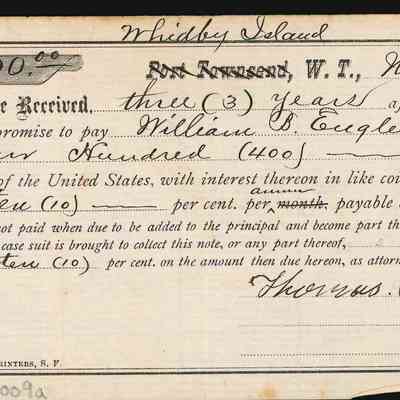 Whidby Island
00.00 Port Townsend, W. T.,
e Received, three (3) Years a
promise to pay William B. Engle
Hundred (400)
of the United States, with interest thereon in like co
en (10) per cent. per month, annum payable
not paid when due to be added to the principal and become part th
case suit is brought to collect this note, or any part thereof,
ten (10) per cent. on the amount then due hereon, as attor
Thomas.
RINTERS, S. F.
009a